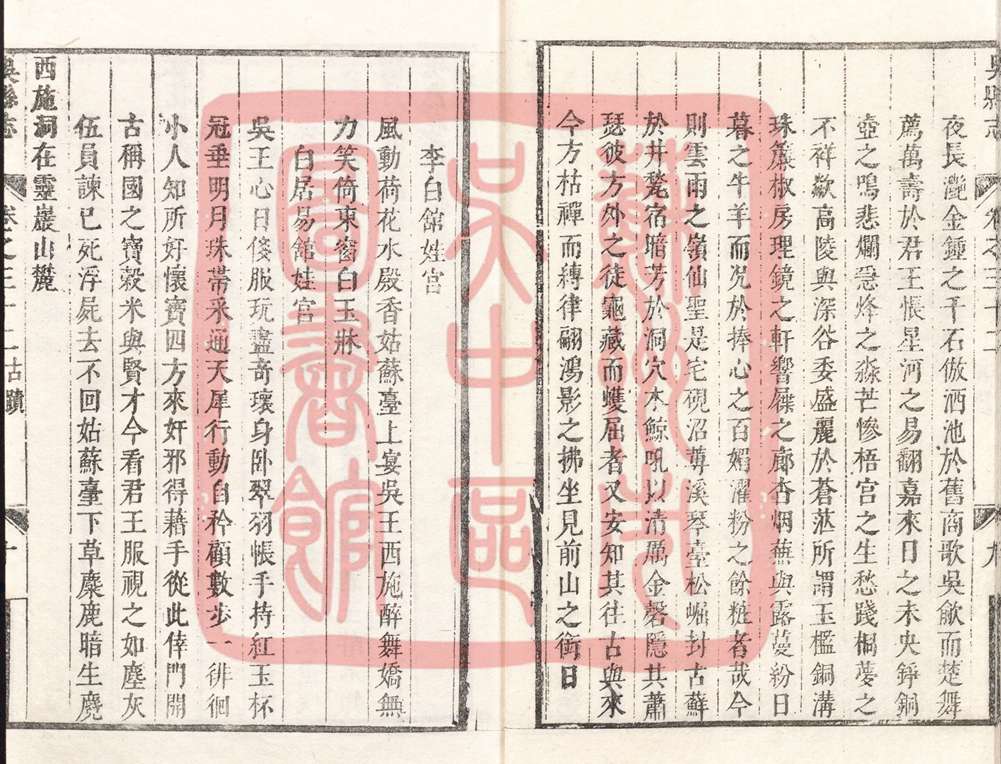 吳縣志
卷之三十二
九
夜長灔金鍾之千石倣酒池於舊商歌吳歈而楚舞
薦萬壽於君王悵星河之易翻嘉來日之未央錚銅
壺之鳴悲爛烽之淼芒慘梧宮之生愁踐桐夢之
不祥歎高陵與深谷委盛麗於蒼莽所謂玉檻銅溝
珠簾椒房理鏡之軒響屧之廊杏烟蕪與露蔓紛日
暮之牛羊而况於捧心之百媚濯粉之餘粧者哉今
則雲雨之嶺仙聖是宅硯沼蓴溪琴臺松崛封古蘚
於井甃宿暗芳於洞穴木鯨吼以清厲金磬隱其蕭
瑟彼方外之徒龜藏而蠖屈者又安知其往古與來
今方枯禪而縛律翩鴻影之拂坐見前山之銜日
李白館娃宮
風動荷花水殿香姑蘇臺上宴吳王西施醉舞嬌無
力笑倚東窗白玉牀
白居易館娃宮
吳王心日侈服玩盡奇瓌身卧翠羽帳手持紅玉杯
冠垂明月珠帶束通天犀行動自矜顧數步一徘徊
小人知所好懷寶四方來奸邪得藉手從此倖門開
古稱國之寶穀米與賢才今看君王服視之如塵灰
伍員諫已死浮屍去不回姑蘇臺下草麋鹿暗生麑
西施洞在靈巖山麓
吳縣志
卷之三十二古蹟
十
蘇州市
吳中區
圖書館